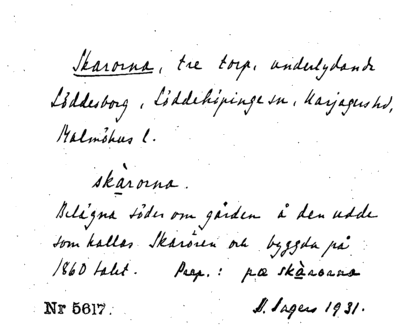 Skarorna, tre torp, underlydande
Löddesborg, Löddeköpinge sn, Harjagers hd,
Malmöhus l.
skàrorna.
Belägna söder om gården å den udde
som kallas Skarören och byggda på
1860 talet. Prep.: pæ skàrorna
Nr 5617. D. Sagers 1931.